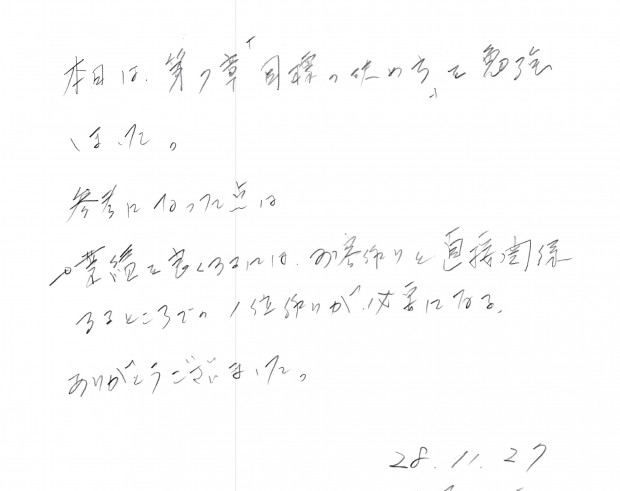 本日は、第7章「目標の決め方」を勉強
しました。
参考になった点は
業績を良くするには、お客作りと直接関係
するところでの1位作りが必要になる。
ありがとうございました。
28.11.27